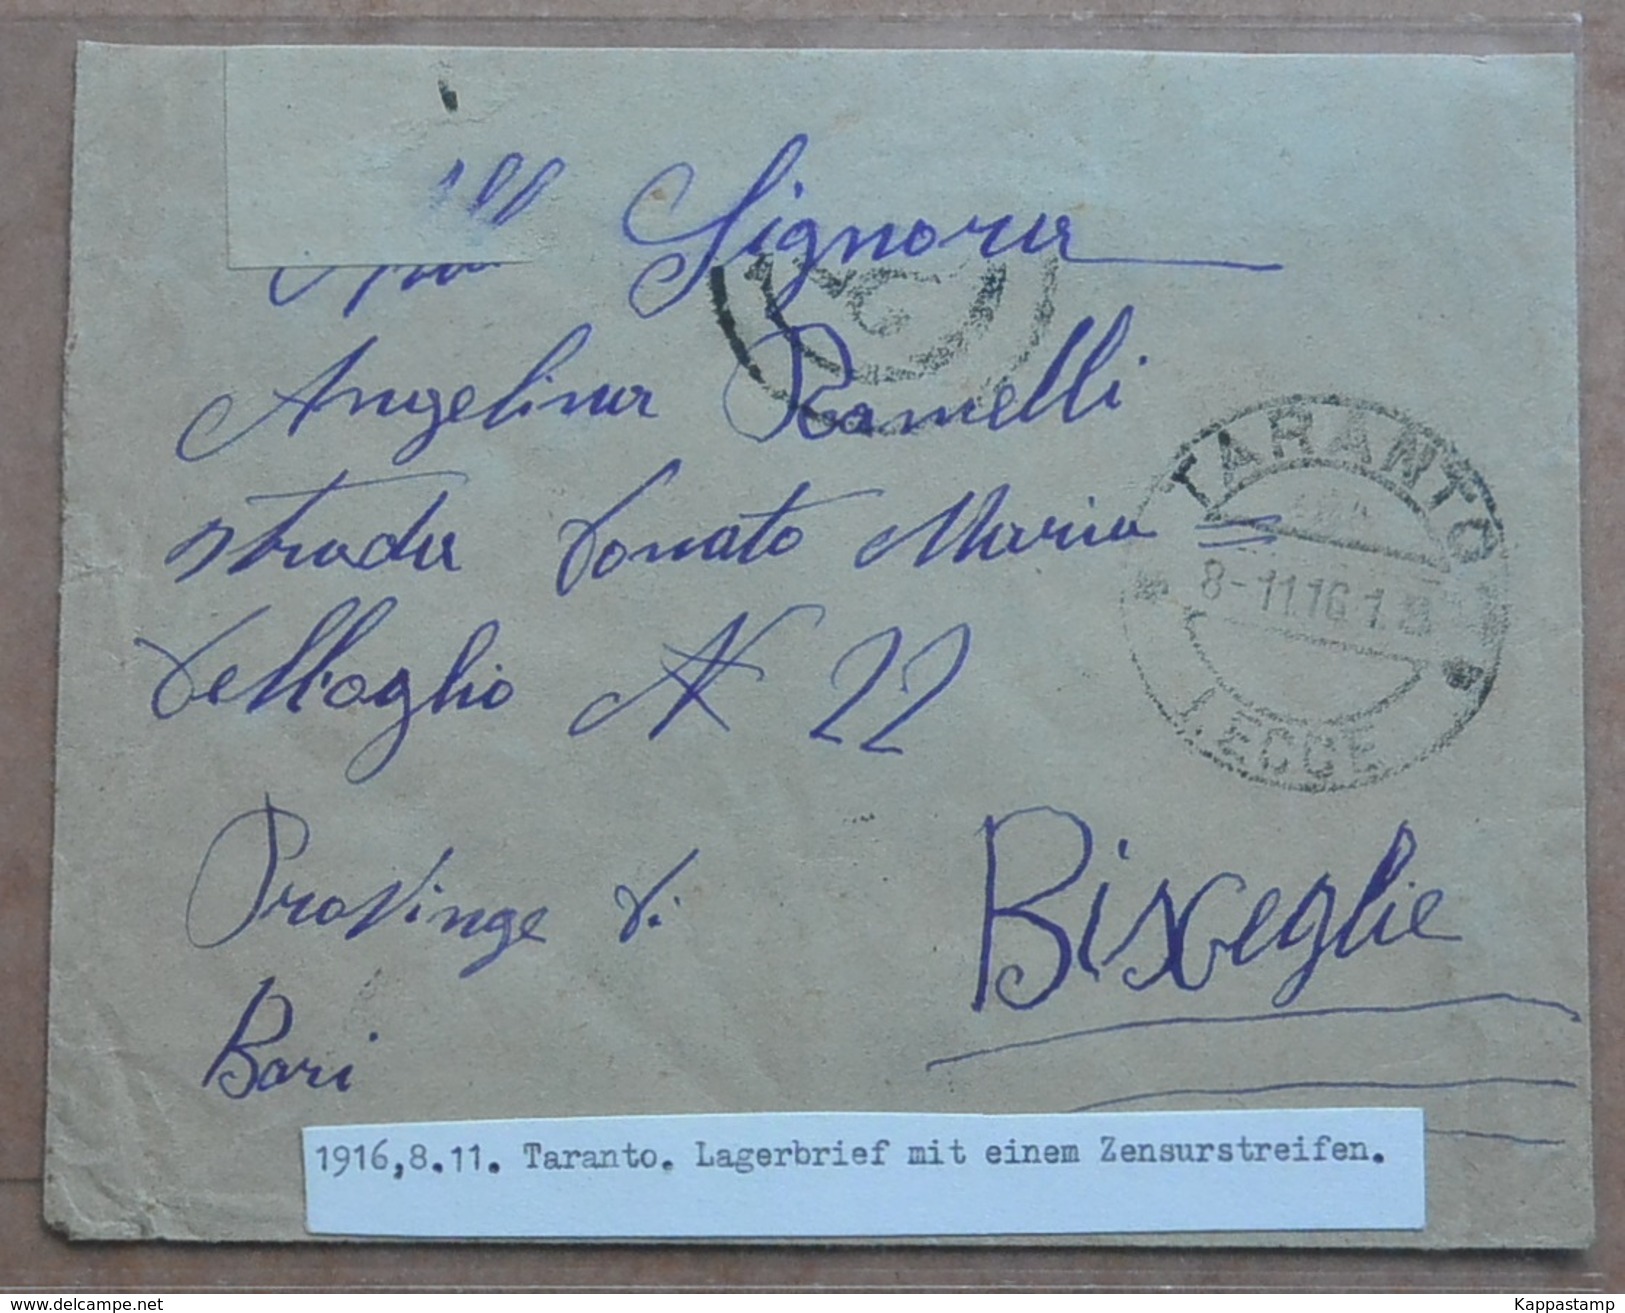 Signora
Angelina Ramelli
strada Donato Maria
Dell'oglio N 22
Provinge di
Bari
Bisceglie
TARANTO
8-11.16.1
LECCE
1916,8.11. Taranto. Lagerbrief mit einem Zensurstreifen.
delcampe.net
Kappastamp